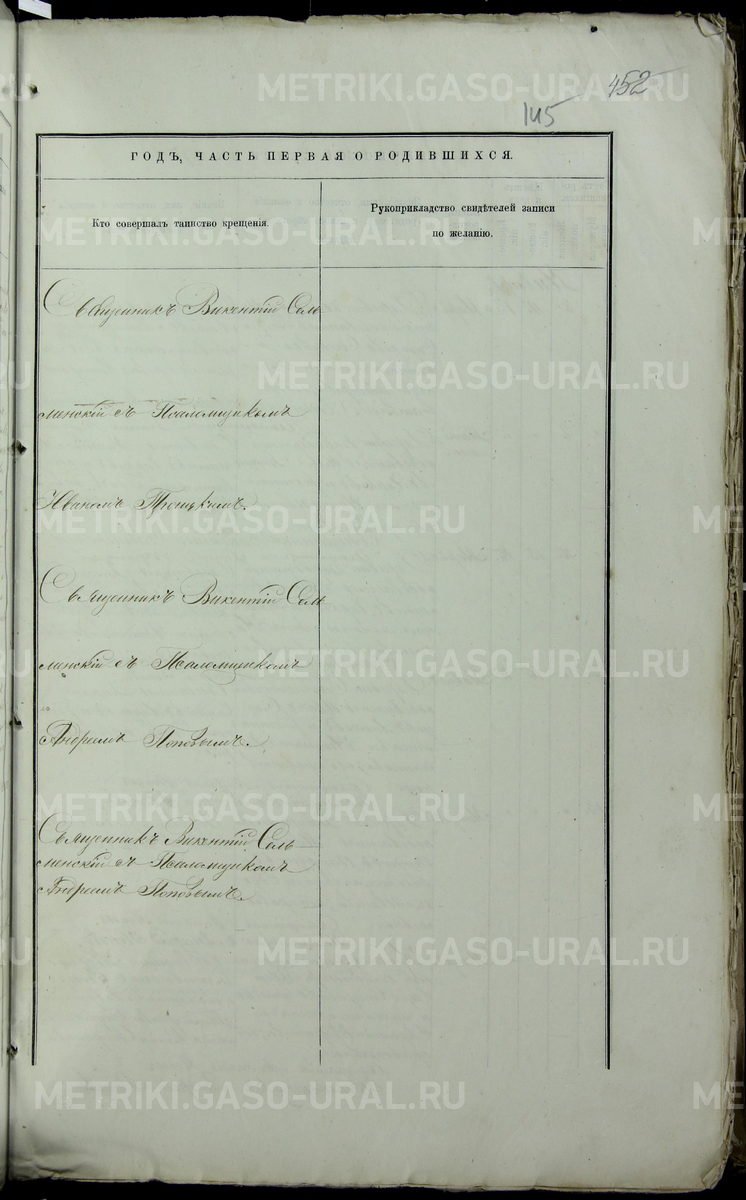 452
145
ГОДЪ, ЧАСТЬ ПЕРВАЯ О РОДИВШИХСЯ.
Кто совершалъ таинство крещенія.
Рукоприкладство свидѣтелей записи
по желанію.
Священникъ Викентій Сель
менскій съ Псаломщикомъ
Иваномъ Троицкимъ.
Священникъ Викентій Сель
менскій съ Псаломщикомъ
Андреемъ Поповымъ.
Священникъ Викентій Сель
менскій съ Псаломщикомъ
Андреемъ Поповымъ.
METRIKI.GASO-URAL.RU